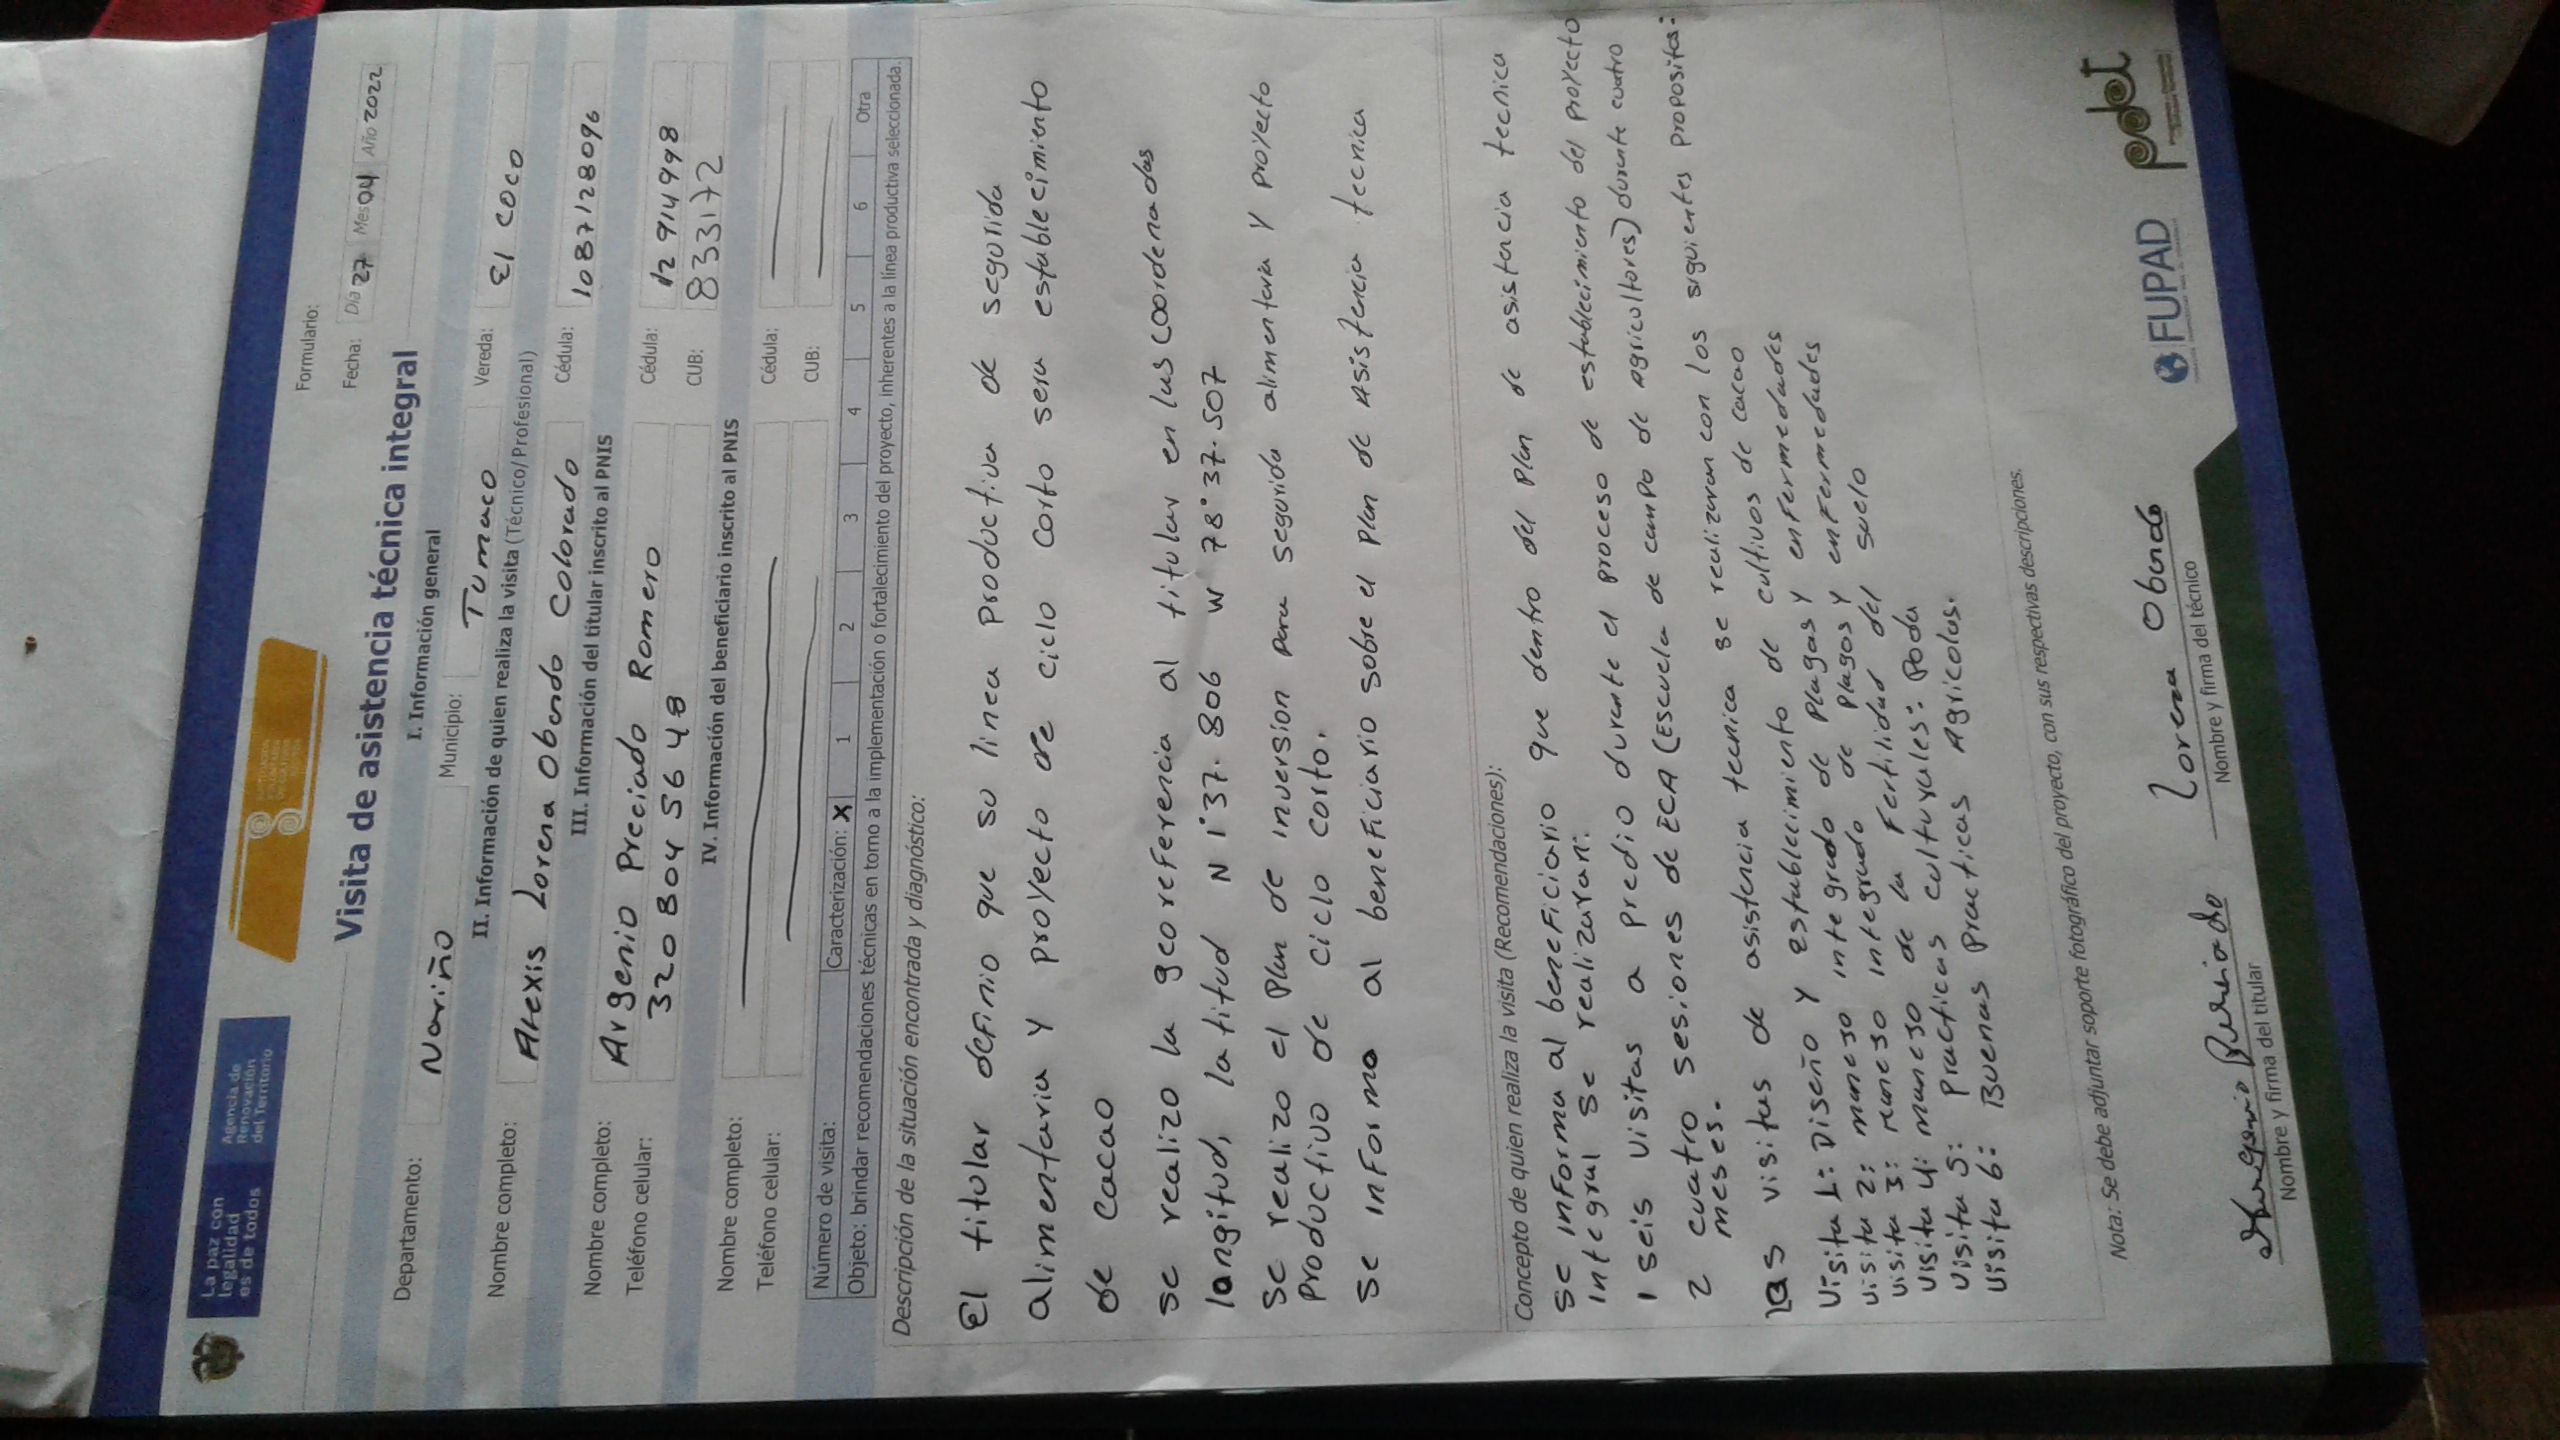 La paz con
legalidad
es de todos
Agencia de
Renovación
del Territorio
Formulario:
Visita de asistencia técnica integral
Fecha: Día 27 Mes 04 Año 2022
I. Información general
Departamento: Nariño Municipio: Tumaco Vereda: El coco
II. Información de quien realiza la visita (Técnico/Profesional)
Nombre completo: Alexis Lorena Obando Colorado Cédula: 1087128096
III. Información del titular inscrito al PNIS
Nombre completo: Argenio Preciado Romero Cédula: 12 914998
Teléfono celular: 320 804 56 48 CUB: 833172
IV. Información del beneficiario inscrito al PNIS
Nombre completo: Cédula:
Teléfono celular: CUB:
Número de visita: Caracterización: X 1 2 3 4 5 6 Otra
Objeto: brindar recomendaciones técnicas en torno a la implementación o fortalecimiento del proyecto, inherentes a la línea productiva seleccionada.
Descripción de la situación encontrada y diagnóstico:
El titular definio que su linea productiva de segurida
alimentaria y proyecto de ciclo corto sera establecimiento
de cacao
se realizo la georeferencia al titular en las coordenadas
longitud, latitud N 1°37.806 W 78°37.507
Se realizo el Plan de inversion para segurida alimentaria y proyecto
Productivo de ciclo corto.
Se informo al beneficiario sobre el plan de asistencia tecnica
Concepto de quien realiza la visita (Recomendaciones):
Se informa al beneficiario que dentro del plan de asistencia tecnica
integral se realizaran:
1 seis visitas a predio durante el proceso de establecimiento del proyecto
2 cuatro sesiones de ECA (Escuela de campo de agricultores) durante cuatro
meses.
las visitas de asistencia tecnica se realizaran con los siguientes propositos:
Visita 1: Diseño y establecimiento de cultivos de cacao
visita 2: manejo integrado de plagas y enfermedades
visita 3: manejo integrado de plagas y enfermedades
visita 4: manejo de la fertilidad del suelo
visita 5: Practicas culturales: Poda
visita 6: Buenas Practicas Agricolas.
Nota: Se debe adjuntar soporte fotográfico del proyecto, con sus respectivas descripciones.
Preciado Lorena Obando
Nombre y firma del titular Nombre y firma del técnico
FUPAD pdet